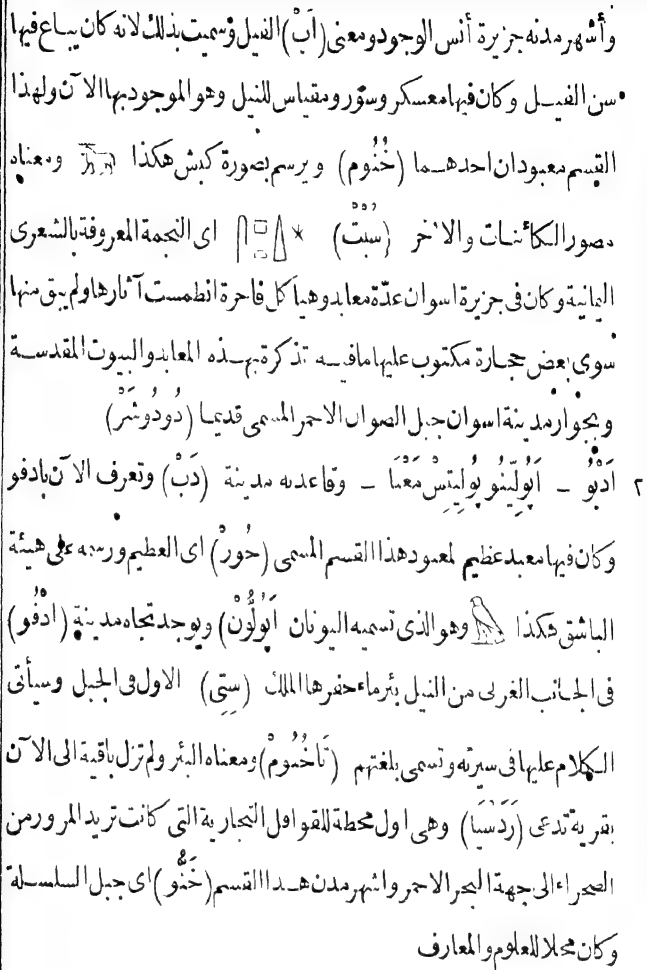 وأشهر مدنه جزيرة أنس الوجود ومعنى (اَبْ) الفيل وسميت بذلك لانه كان يباع فيها
سن الفيل وكان فيها معسكر وسور ومقياس للنيل وهو الموجود بها الآن ولهذا
القسم معبودان احدهما (خُنُوم) ويرسم بصورة كبش هكذا ومعناه
مصور الكائنات والآخر (سُبْتْ) اى النجمة المعروفة بالشعرى
اليمانية وكان فى جزيرة اسوان عدّة معابد وهياكل فاخرة انطمست آثارها ولم يبق منها
سوى بعض حجارة مكتوب عليها مافيه تذكرة بهذه المعابد والبيوت المقدسة
وبجوار مدينة اسوان جبل الصوان الاحمر المسمى قديما (دُودُوشَرْ)
٢ اَدْبُو – اَپُولِّينُو پُولِيتِسْ مَغْنَا – وقاعدته مدينة (دَبْ) وتعرف الآن بادفو
وكان فيها معبد عظيم لمعبود هذا القسم المسمى (حُورْ) اى العظيم ورسمه على هيئة
الباشق هكذا وهو الذى تسميه اليونان اَپُولُّونْ) ويوجد تجاه مدينة (ادْفُو)
فى الجانب الغربى من النيل بئر ماء حفرها الملك (سِتِى) الاول فى الجبل وسيأتى
الكلام عليها فى سيرته وتسمى بلغتهم (تَاخْنُومْ) ومعناه البئر ولم تزل باقية الى الآن
بقرية تدعى (رَدَسِيَا) وهى اول محطة للقوافل التجارية التى كانت تريد المرور من
الصحراء الى جهة البحر الاحمر واشهر مدن هذا القسم (خَنُّو) اى جبل السلسلة
وكان محلا للعلوم والمعارف